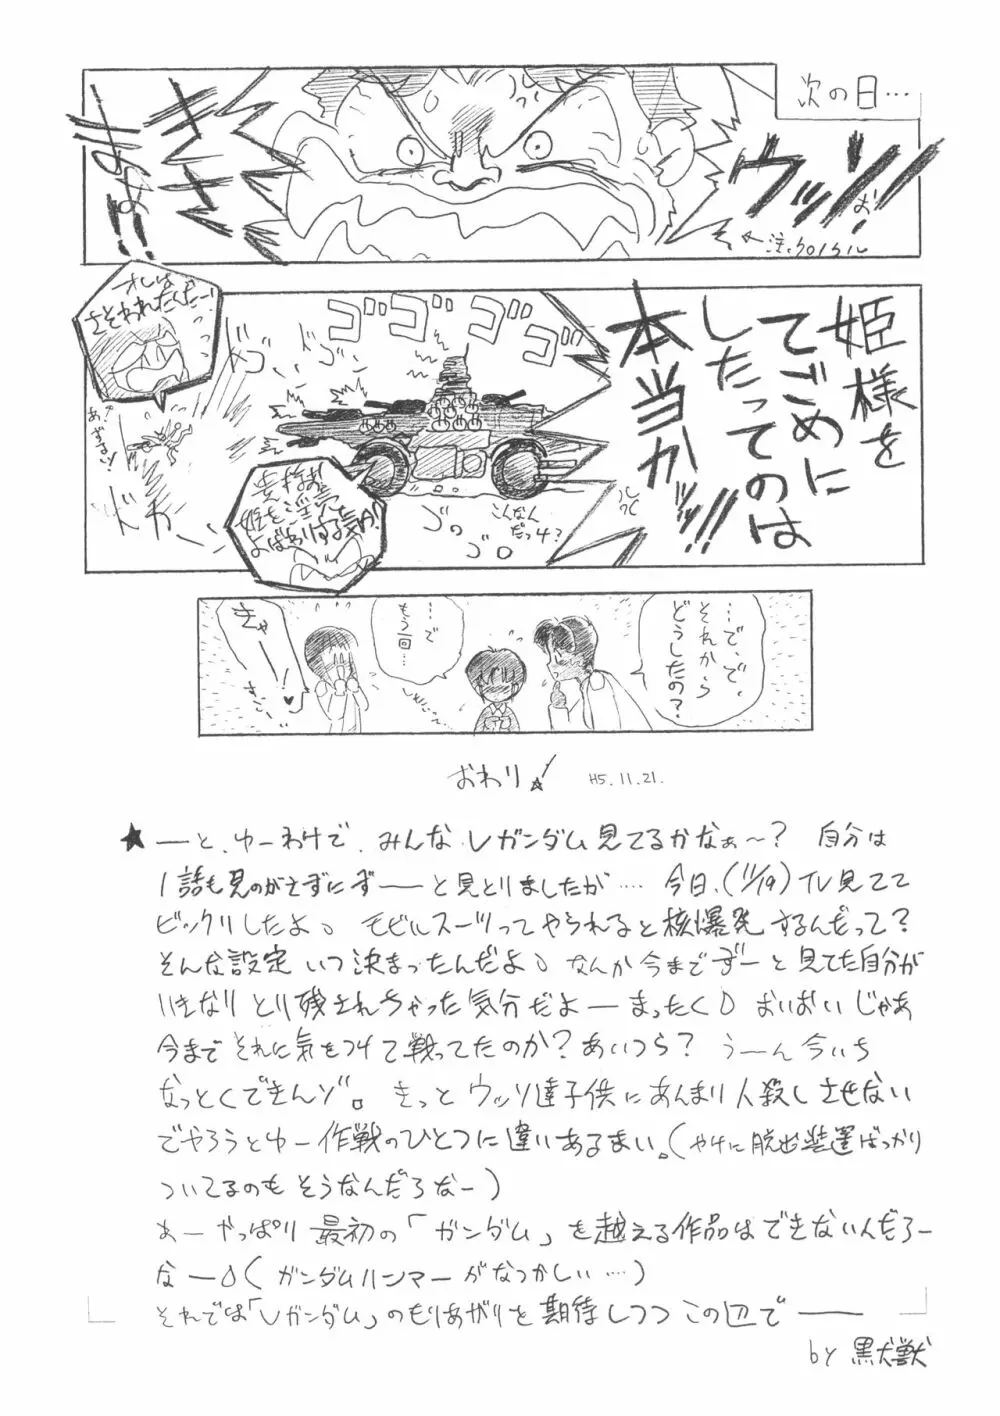 次の日…
ウッソ
きさ
まぁ!!
←注、クロノクル
姫様を
てごめに
したってのは
本当か!!
オレは
さそわれたんだー!
ゴゴゴゴ
ドカ
ゴロ
ゴロ
こんなん
だっけ?
貴様あ
姫を淫売
よばわりする気か!
…で、で、
それから
どうしたの?
…で
もう一回…
きゃーー!
おわり! H5.11.21.
★ーと、ゆーわけで、みんなVガンダム見てるかなぁ〜? 自分は
1話も見のがさずにずーーと見とりましたが…. 今日、(11/19) TV見てて
ビックリしたよ。 モビルスーツってやられると核爆発するんだって?
そんな設定いつ決まったんだよ。なんか今までずーと見てた自分が
いきなりとり残されちゃった気分だよーまったく。 おいおいじゃあ
今までそれに気をつけて戦ってたのか?あいつら? うーん今いち
なっとくできんゾ。 きっとウッソ達子供にあんまり人殺しさせない
でやろうとゆー作戦のひとつに違いあるまい。(やけに脱出装置ばっかり
ついてるのもそうなんだろなー)
あーやっぱり最初の「ガンダム」を越える作品はできないんだろー
なー。(ガンダムハンマーがなつかしい…)
それでは「Vガンダム」のもりあがりを期待しつつこの辺でーー
by 黒犬獣